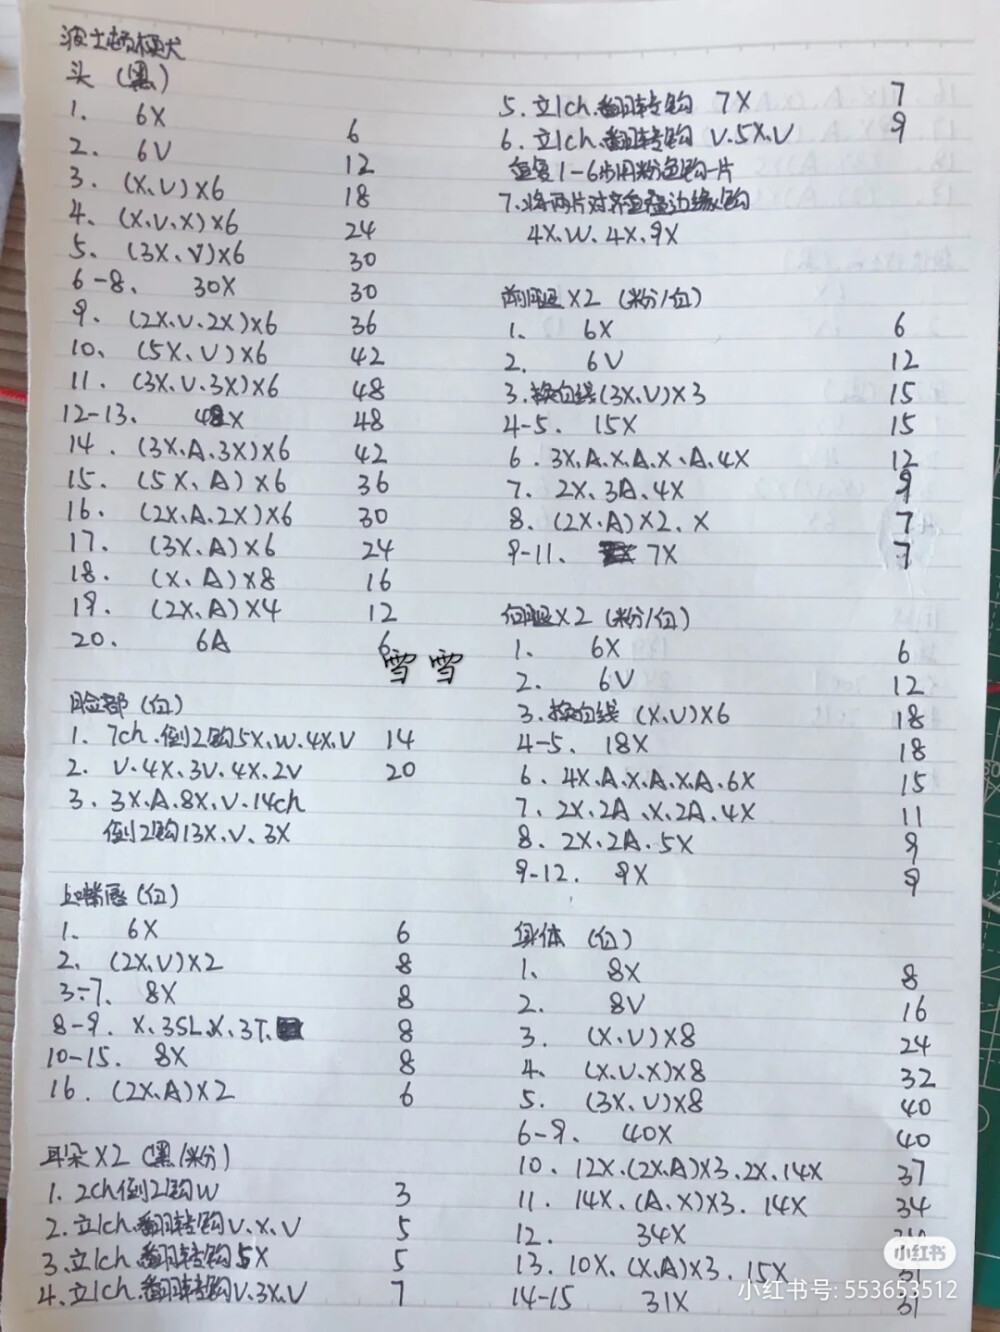 波士顿梗犬
头 (黑)
1. 6X 6
2. 6V 12
3. (X.V)×6 18
4. (X.V.X)×6 24
5. (3X.V)×6 30
6-8. 30X 30
9. (2X.V.2X)×6 36
10. (5X.V)×6 42
11. (3X.V.3X)×6 48
12-13. 48X 48
14. (3X.A.3X)×6 42
15. (5X.A)×6 36
16. (2X.A.2X)×6 30
17. (3X.A)×6 24
18. (X.A)×8 16
19. (2X.A)×4 12
20. 6A 6
雪雪
脸部 (白)
1. 7ch.倒2钩5X.W.4X.V 14
2. V.4X.3V.4X.2V 20
3. 3X.A.8X.V.14ch
倒2钩13X.V.3X
上嘴唇 (白)
1. 6X 6
2. (2X.V)×2 8
3-7. 8X 8
8-9. X.3SL.X.3T. 8
10-15. 8X 8
16. (2X.A)×2 6
耳朵×2 (黑/粉)
1. 2ch倒2钩W 3
2. 立1ch.翻转钩V.X.V 5
3. 立1ch.翻转钩5X 5
4. 立1ch.翻转钩V.3X.V 7
5. 立1ch.翻转钩 7X 7
6. 立1ch.翻转钩 V.5X.V 9
重复1-6步用粉色钩一片
7. 将两片对齐重叠边缘钩
4X.W.4X.9X
前腿×2 (粉/白)
1. 6X 6
2. 6V 12
3. 换白线(3X.V)×3 15
4-5. 15X 15
6. 3X.A.X.A.X.A.4X 12
7. 2X.3A.4X 9
8. (2X.A)×2.X 7
9-11. 7X 7
后腿×2 (粉/白)
1. 6X 6
2. 6V 12
3. 换白线 (X.V)×6 18
4-5. 18X 18
6. 4X.A.X.A.X.A.6X 15
7. 2X.2A.X.2A.4X 11
8. 2X.2A.5X 9
9-12. 9X 9
身体 (白)
1. 8X 8
2. 8V 16
3. (X.V)×8 24
4. (X.V.X)×8 32
5. (3X.V)×8 40
6-9. 40X 40
10. 12X.(2X.A)×3.2X.14X 37
11. 14X.(A.X)×3.14X 34
12. 34X
13. 10X.(X.A)×3.15X 31
14-15 31X 31
小红书
小红书号: 553653512